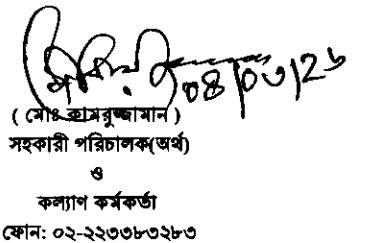 ০৪|০৩|২৬
( মোঃ কামরুজ্জামান )
সহকারী পরিচালক(অর্থ)
ও
কল্যাণ কর্মকর্তা
ফোন: ০২-২২৩৩৮৩২৮৩